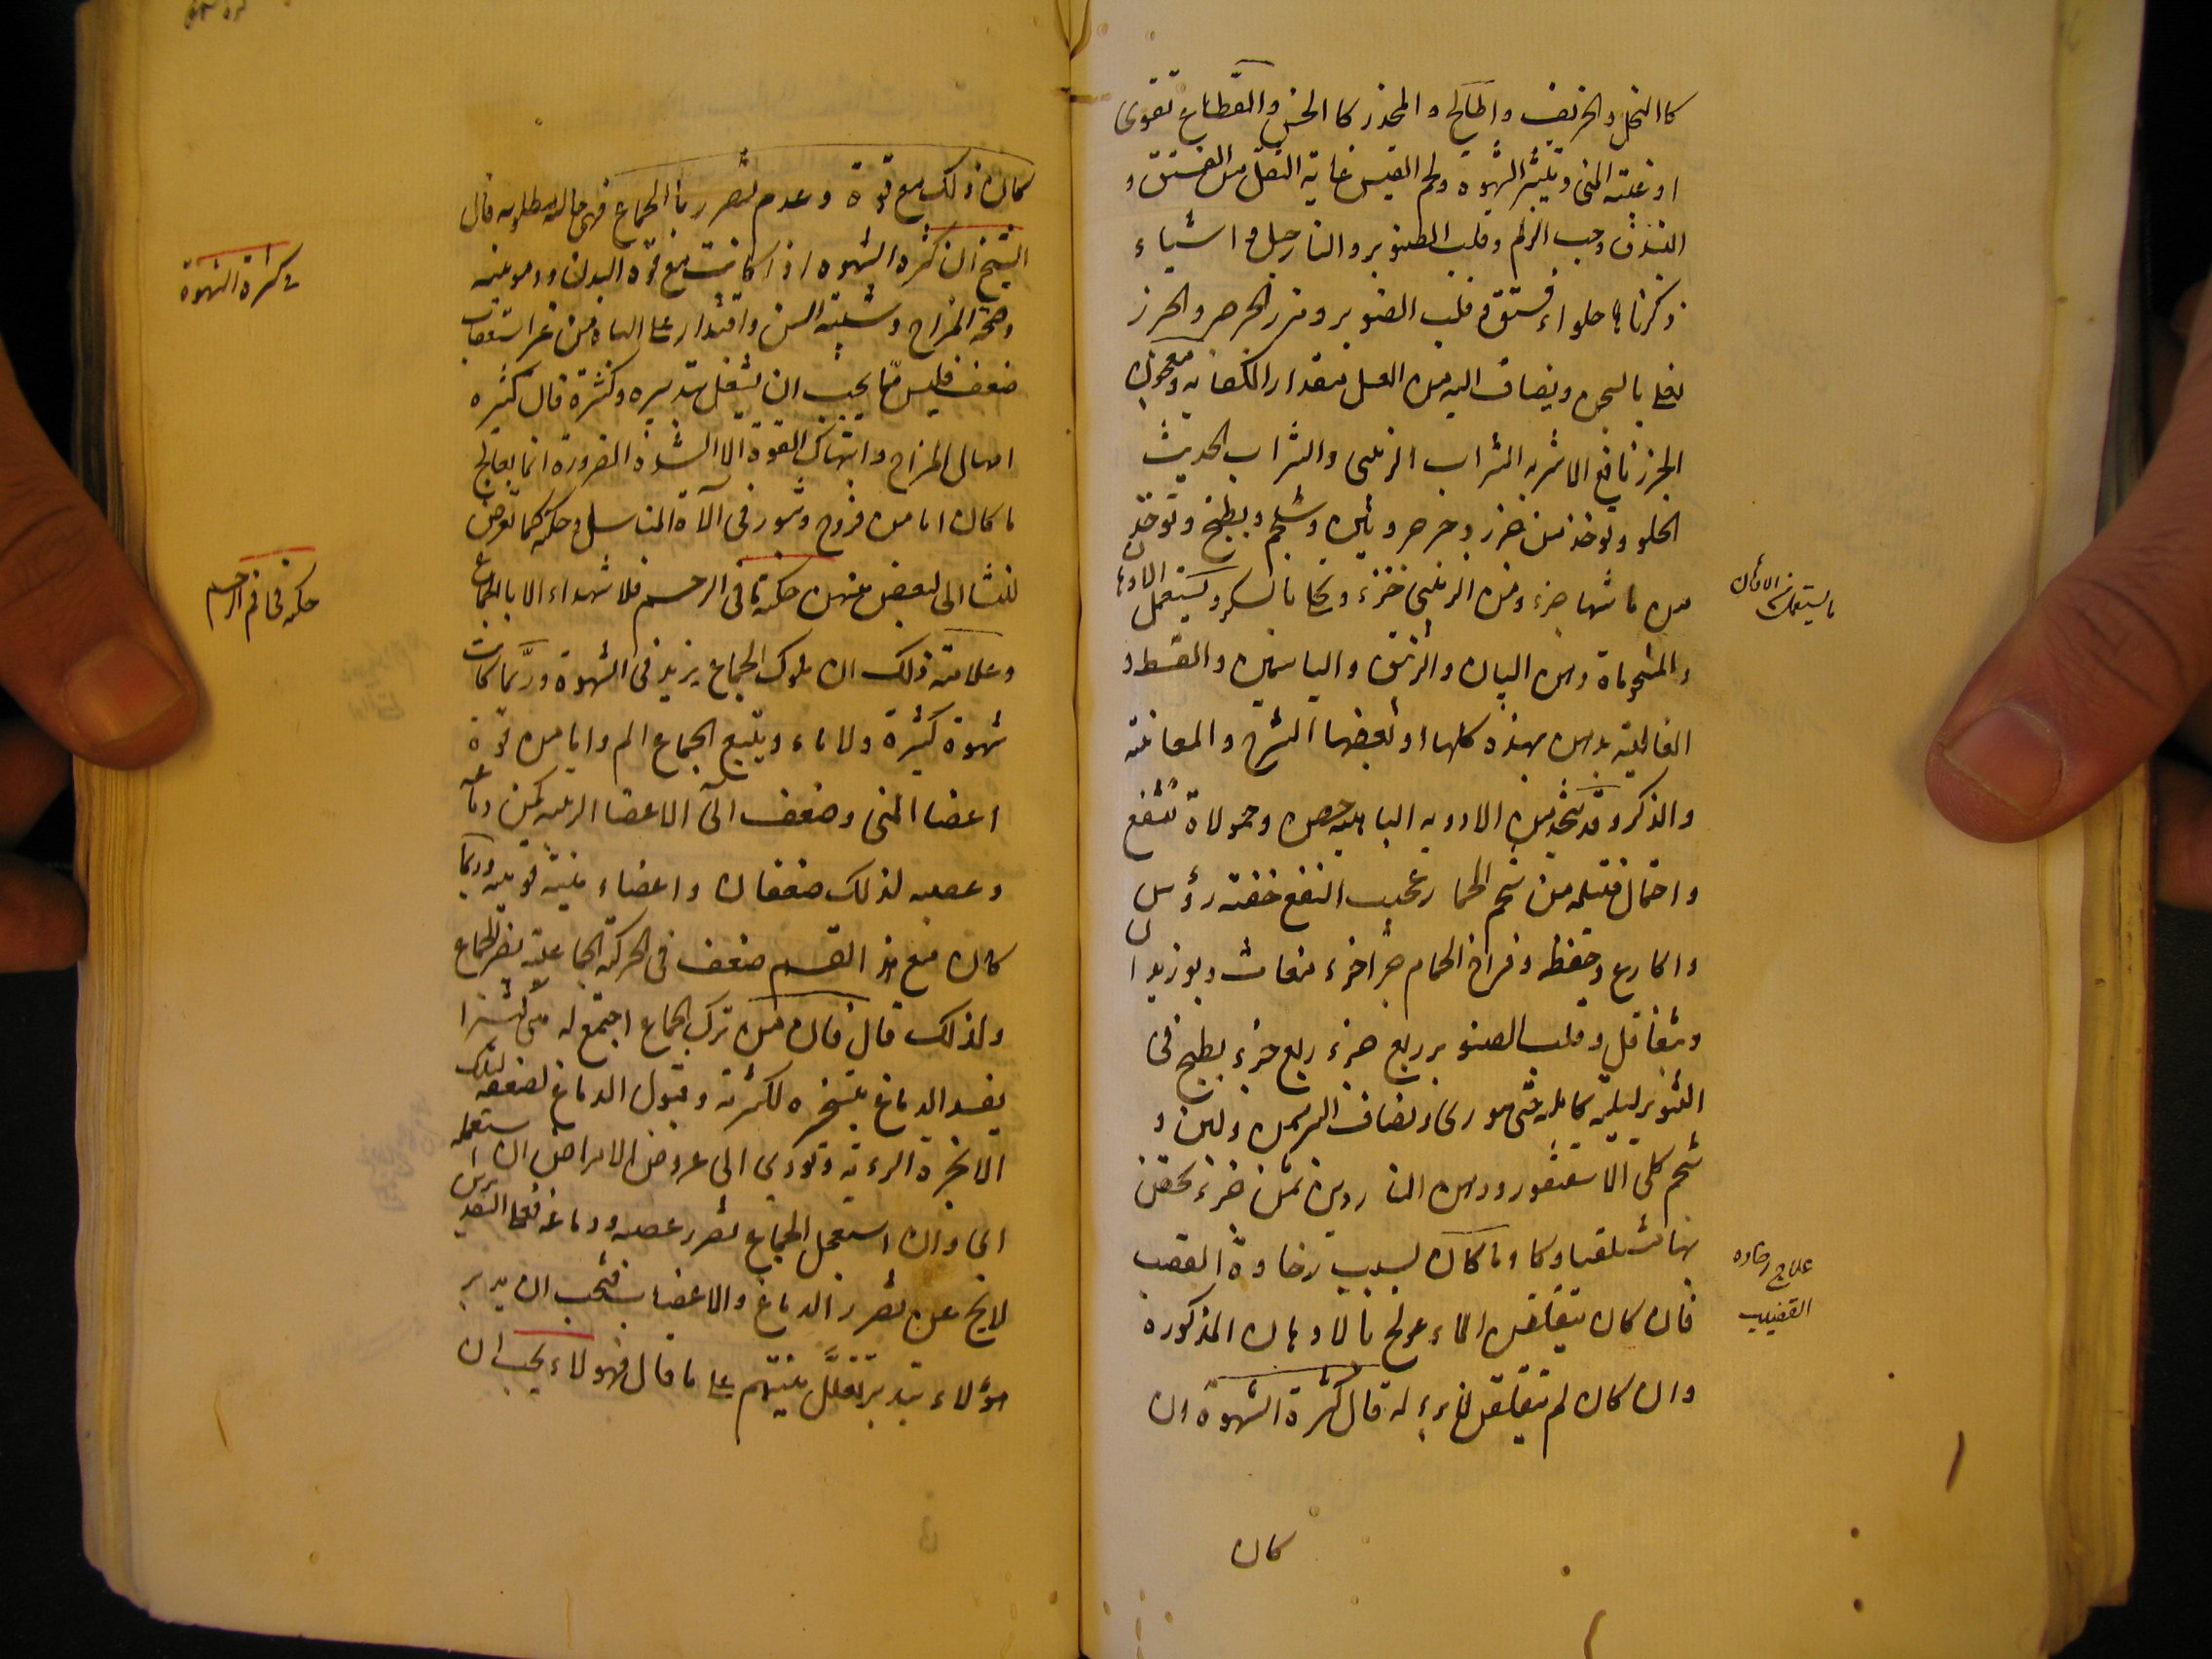 كالنخل والخريف والمالح والمخدر كالخس والقطاع تقوى
او غلبة المنى وتكثير الشهوة ولحم العيس غاية النقل من الفستق و
البندق وحب الزلم وقلب الصنوبر والنارجيل و اشياء
ذكرناها حلواء فستق وقلب الصنوبر وبزر الجرجر والجزر
يقلى بالسمن ويضاف اليه من العسل بمقدار الكفاية ومعجون
الجزر نافع الاشربة الشراب الزبيبى والشراب الحديث
الحلو ويؤخذ من جزر وجرجر وتين وشلجم ويطبخ ويؤخذ
من مائها جزء ومن الزبيبى جزء ويحلى بالسكر ويستعمل الادهان
والمشموماة دهن البان والزنبق والياسمين والقسط و
الغالية يدهن بهذه كلها او بعضها الشرج والمعانة
والذكر وقد يتخذ من الادوية الباهية حقن وحمولاة تنفع
واحتمال فتيلة من شحم الحمار عجيب النفع حقنة رؤس
واكارع وحنطة وفراخ الحمام جزء جزء مغاث وبوزيدا
وشقاقل وقلب الصنوبر ربع جزء ربع جزء يطبخ فى
التنور ليلة كاملة حتى يهرى ويضاف اليه سمن ولبن و
شحم كلى الاسقنقور ودهن الناردين ثمن جزء يحقن
بها مستلقيا وكا وما كان بسبب رخاوة القضيب
فان كان يتقلص الماء عولج بالادهان المذكورة
وان كان لم يتقلص فلا برء له قال كثرة الشهوة ان
كان
ما يستعمل من الادهان
علاج رخاوه
القضيب
كان ذلك مع قوة وعدم تضرر بالجماع فهى حالة مطلوبة قال
الشيخ ان كثرة الشهوة اذا كانت مع قوة البدن ودمويته
وصحة المزاج وشبيبة السن واقتدار على الباه من غير استعقاب
ضعف فليس مما يجب ان يشغل بتدبيره وكثرة قال كثيره
ابهال المزاج وانتهاك القوة الا لشدة الضرورة انما يعالج
ما كان اما من قروح وبثور فى آلاة التناسل وحكة كما تعرض
للنساء الى بعض منهن حكة ما فى الرحم فلا تهداء الا بالجماع
وعلامة ذلك ان سلوك الجماع يزيد فى الشهوة وربما كانت
شهوة كثيرة ولا ماء ويتبع الجماع الم واما من قوة
اعضا المنى وضعف الى الاعضا الرئيسة كمن دماغه
وعصبه لذلك ضعفان واعضاء منيه قويه وربما
كان مع هذا القسم ضعف فى الحركة الجماعية يضر الجماع
ولذلك قال فان من ترك الجماع اجتمع له منى كثيرا
يفسد الدماغ بتبخره لكثرته وقبول الدماغ لضعفه لتلك
الابخرة الردية وتؤدى الى عروض الامراض ان استعمله
اى وان استعمل الجماع تضرر عصبه ودماغه فعلى التقديرين
لا ينج عن تضرر الدماغ والاعضاب فيجب ان يدبر
هؤلاء بتدبير تقلل منيهم على ما قال فهؤلاء يجب ان
فى كثرة الشهوة
حكه فى فم الرحم